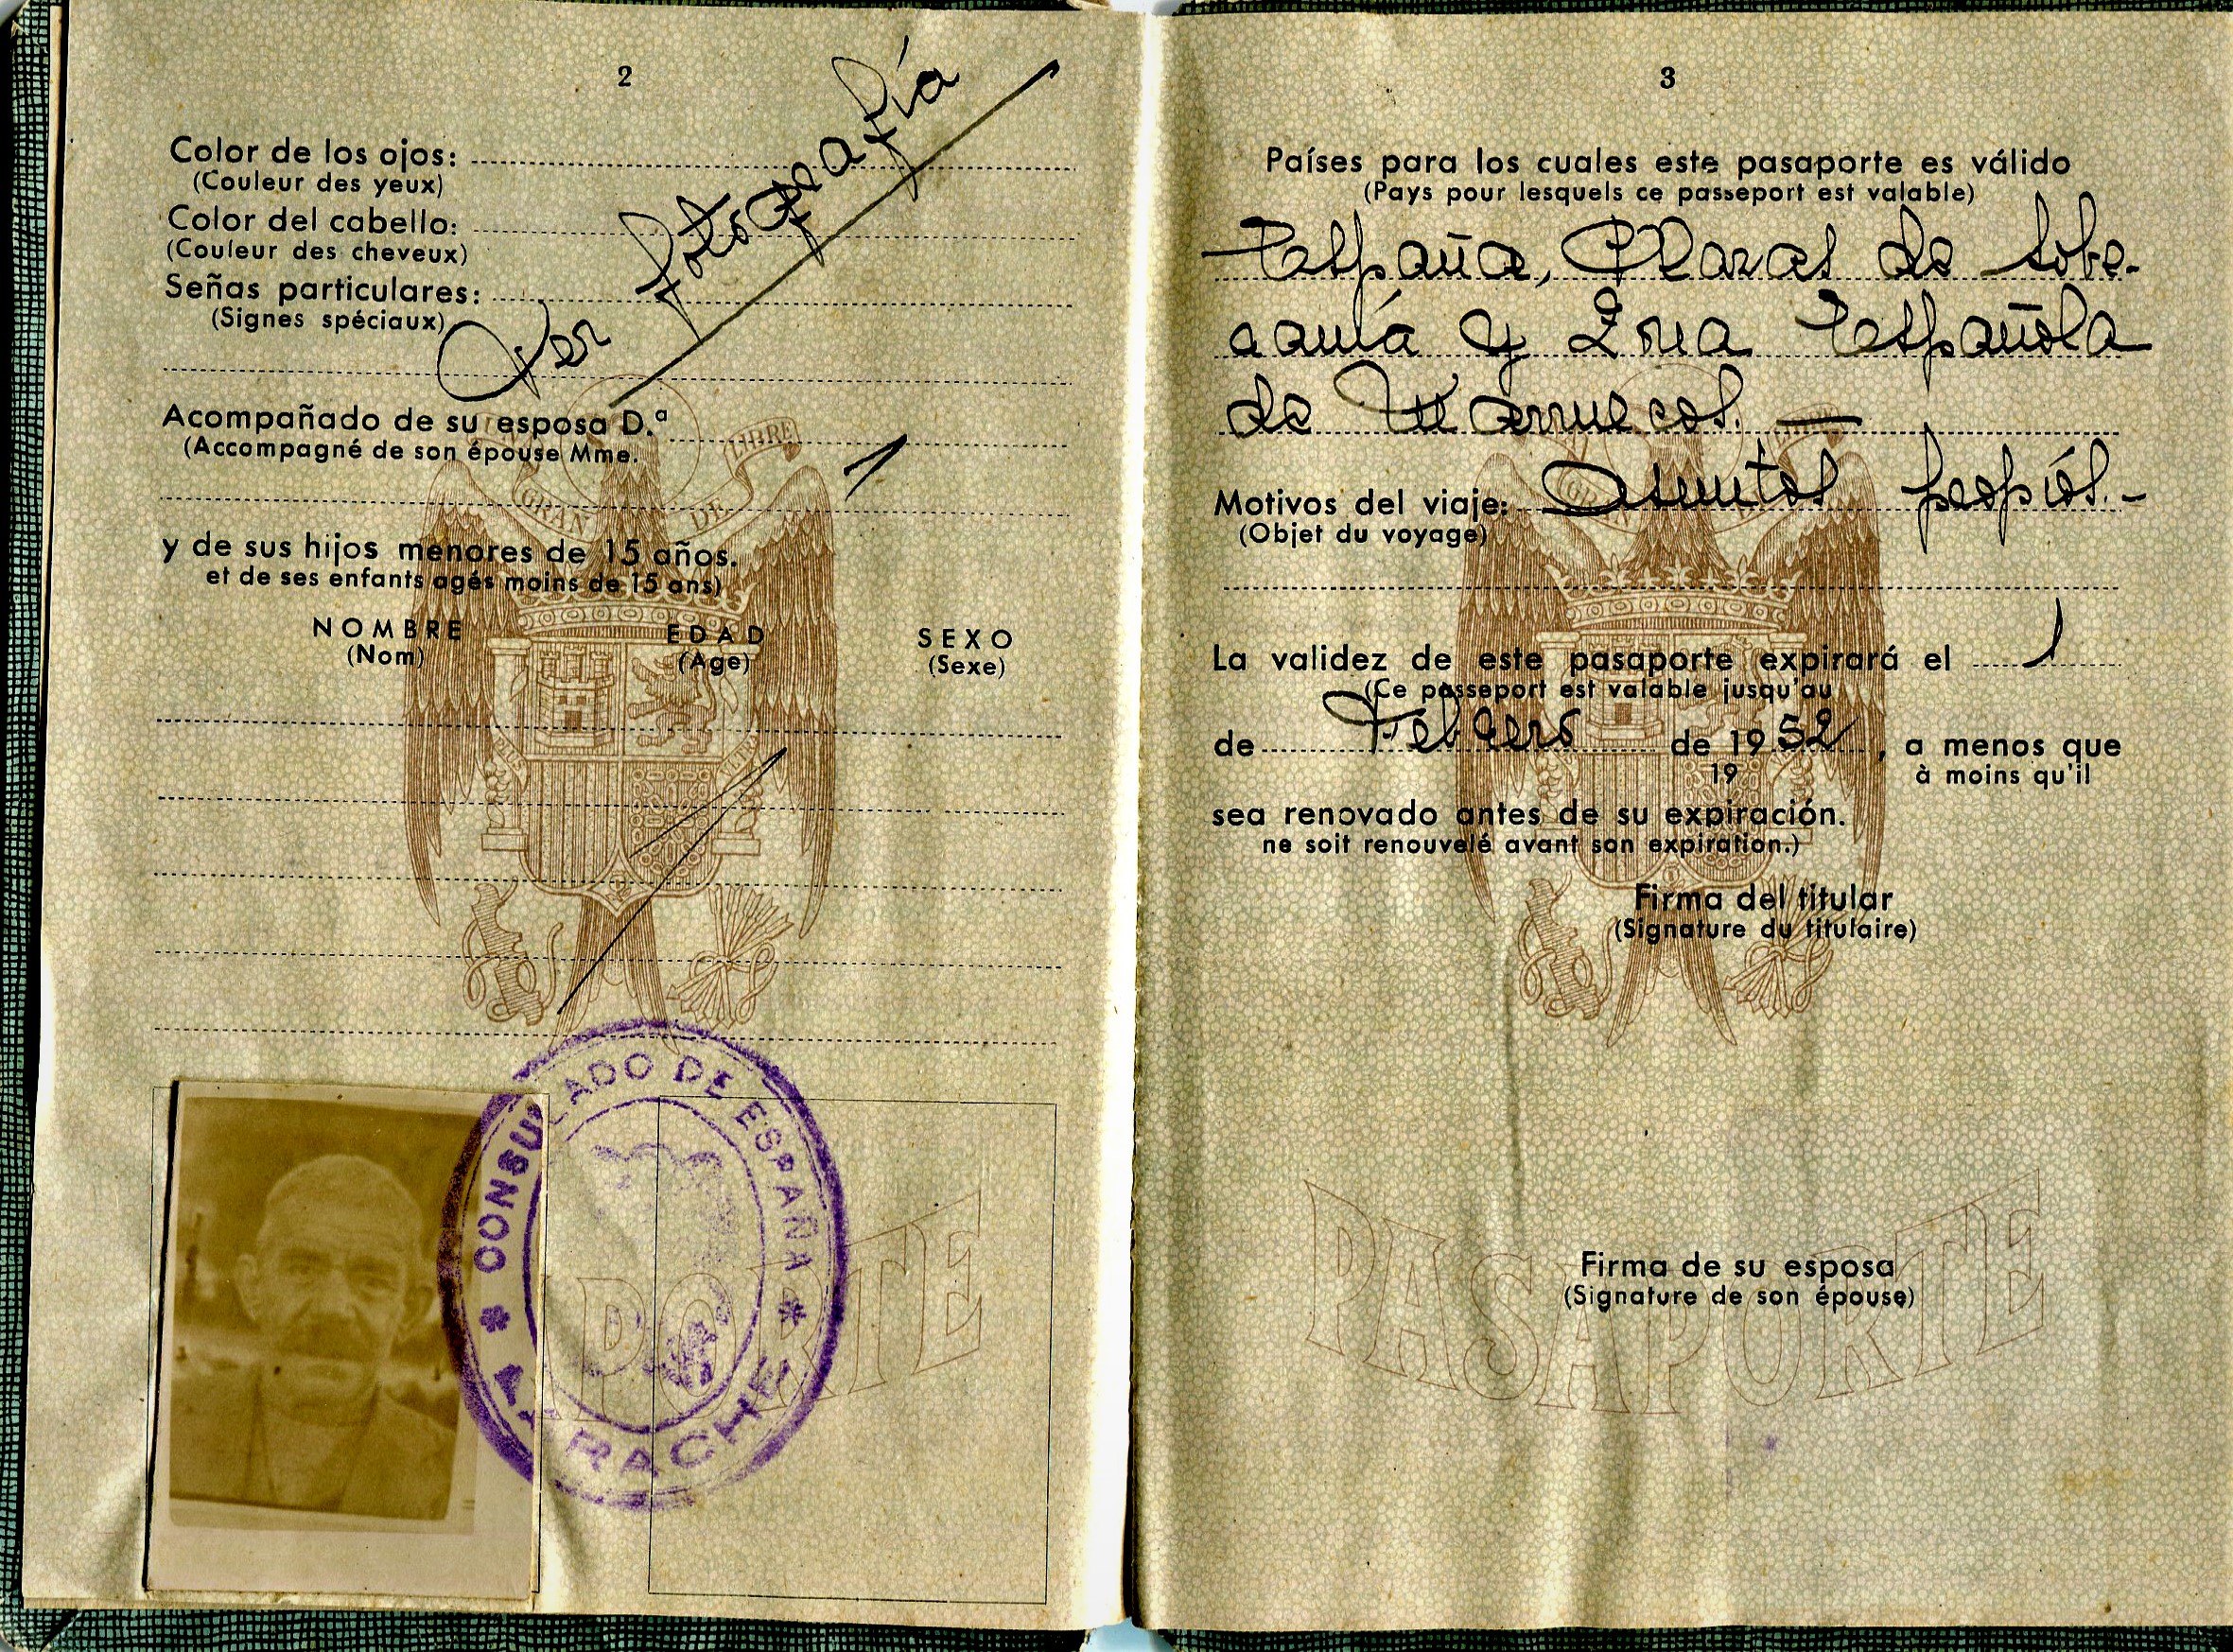 2
Color de los ojos:
(Couleur des yeux)
Color del cabello:
(Couleur des cheveux)
Señas particulares:
(Signes spéciaux)
Ver fotografía
Acompañado de su esposa D.ª
(Accompagné de son épouse Mme.
y de sus hijos menores de 15 años.
et de ses enfants agés moins de 15 ans)
NOMBRE EDAD SEXO
(Nom) (Age) (Sexe)
GRAN DE LIBRE
CONSULADO DE ESPAÑA
* LARACHE *
PORTE
3
Países para los cuales este pasaporte es válido
(Pays pour lesquels ce passeport est valable)
España, Plazas de Sobe-
ranía y Zona Española
de Marruecos. —
Motivos del viaje: Asuntos propios.-
(Objet du voyage)
GRAN
La validez de este pasaporte expirará el 1
(Ce passeport est valable jusqu'au
de Febrero de 1952, a menos que
19 à moins qu'il
sea renovado antes de su expiración.
ne soit renouvelé avant son expiration.)
Firma del titular
(Signature du titulaire)
Firma de su esposa
(Signature de son épouse)
PASAPORTE